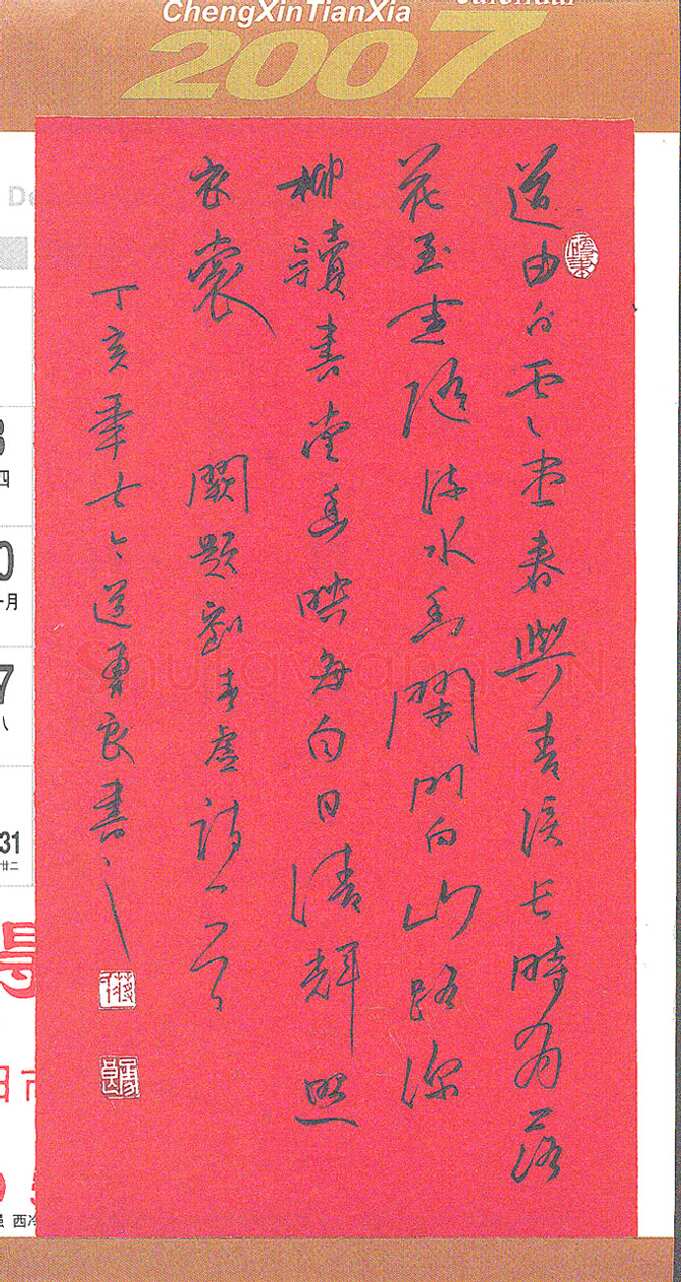 ChengXinTianXia
2007
道由白雲盡春與青溪長時有落
花至遠隨流水香閑門向山路深
柳讀書堂幽映每白日清輝照
衣裳 闕題劉昚虛詩一首
丁亥年 勇良書
四
31
廿二